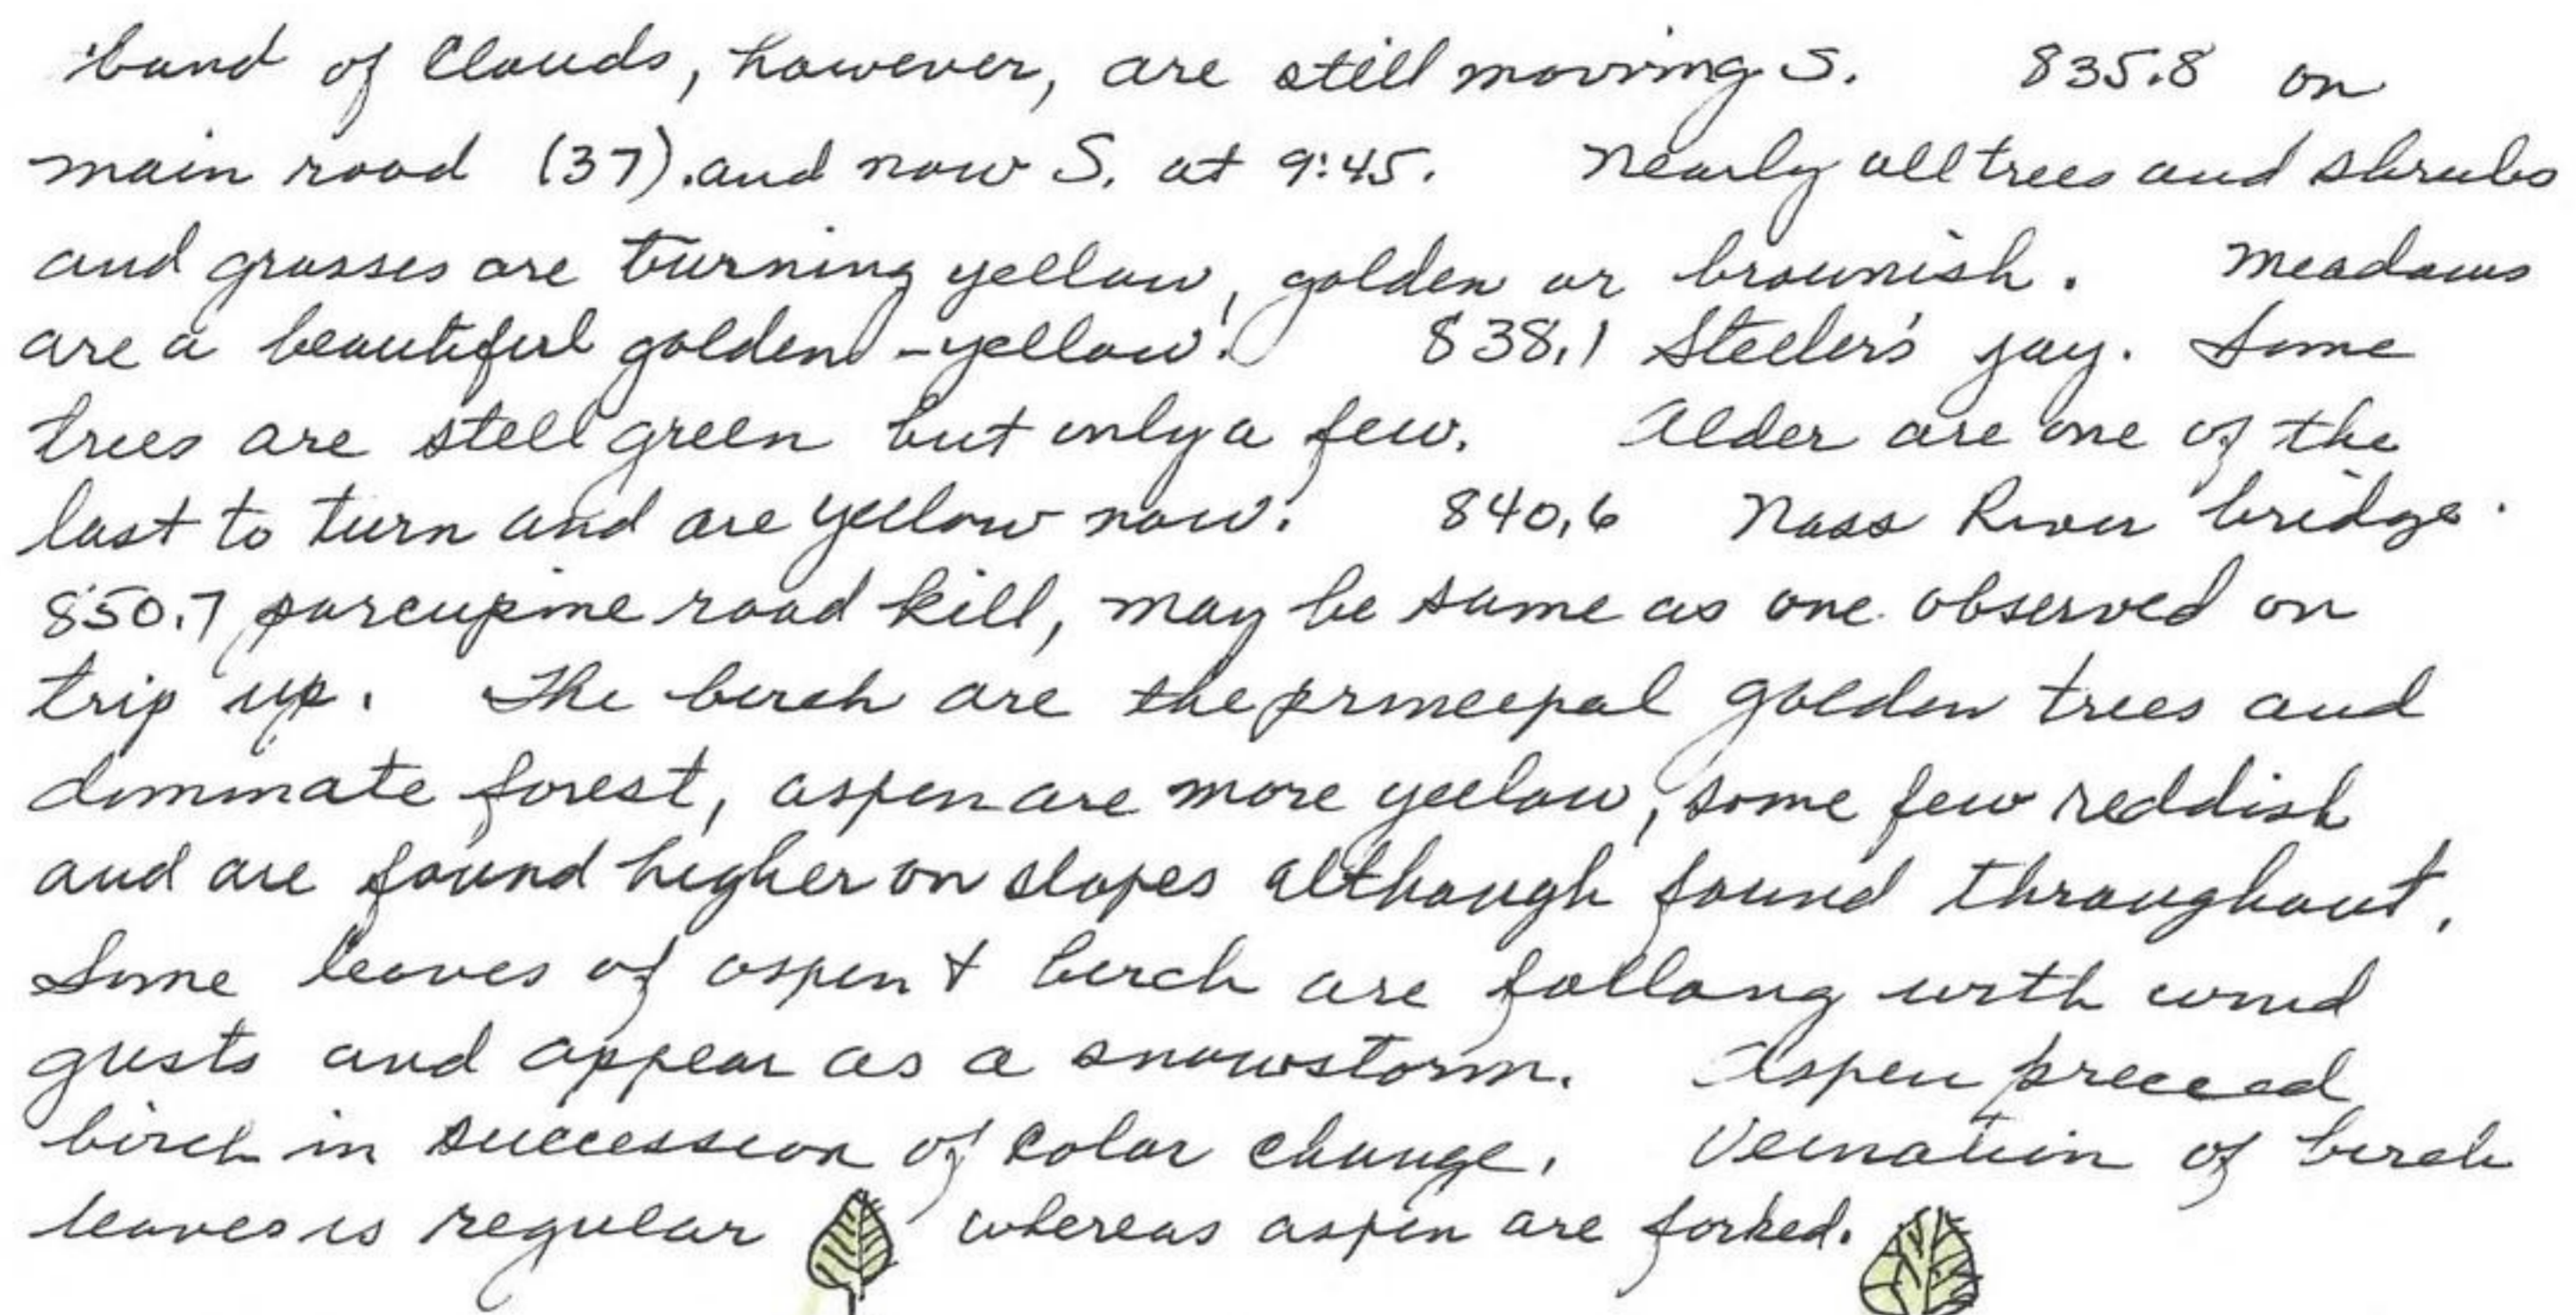 band of clouds, however, are still moving S. 835.8 on
main road (37). and now S. at 9:45. Nearly all trees and shrubs
and grasses are turning yellow, golden or brownish. Meadows
are a beautiful golden-yellow. 838.1 Steller's jay. Some
trees are still green but only a few. Alder are one of the
last to turn and are yellow now. 840.6 Nass River bridge.
850.7 porcupine road kill, may be same as one observed on
trip up. The birch are the principal golden trees and
dominate forest, aspen are more yellow, some few reddish
and are found higher on slopes although found throughout.
Some leaves of aspen + birch are falling with wind
gusts and appear as a snowstorm. Aspen preceed
birch in succession of color change. Vernation of birch
leaves is regular whereas aspen are forked.